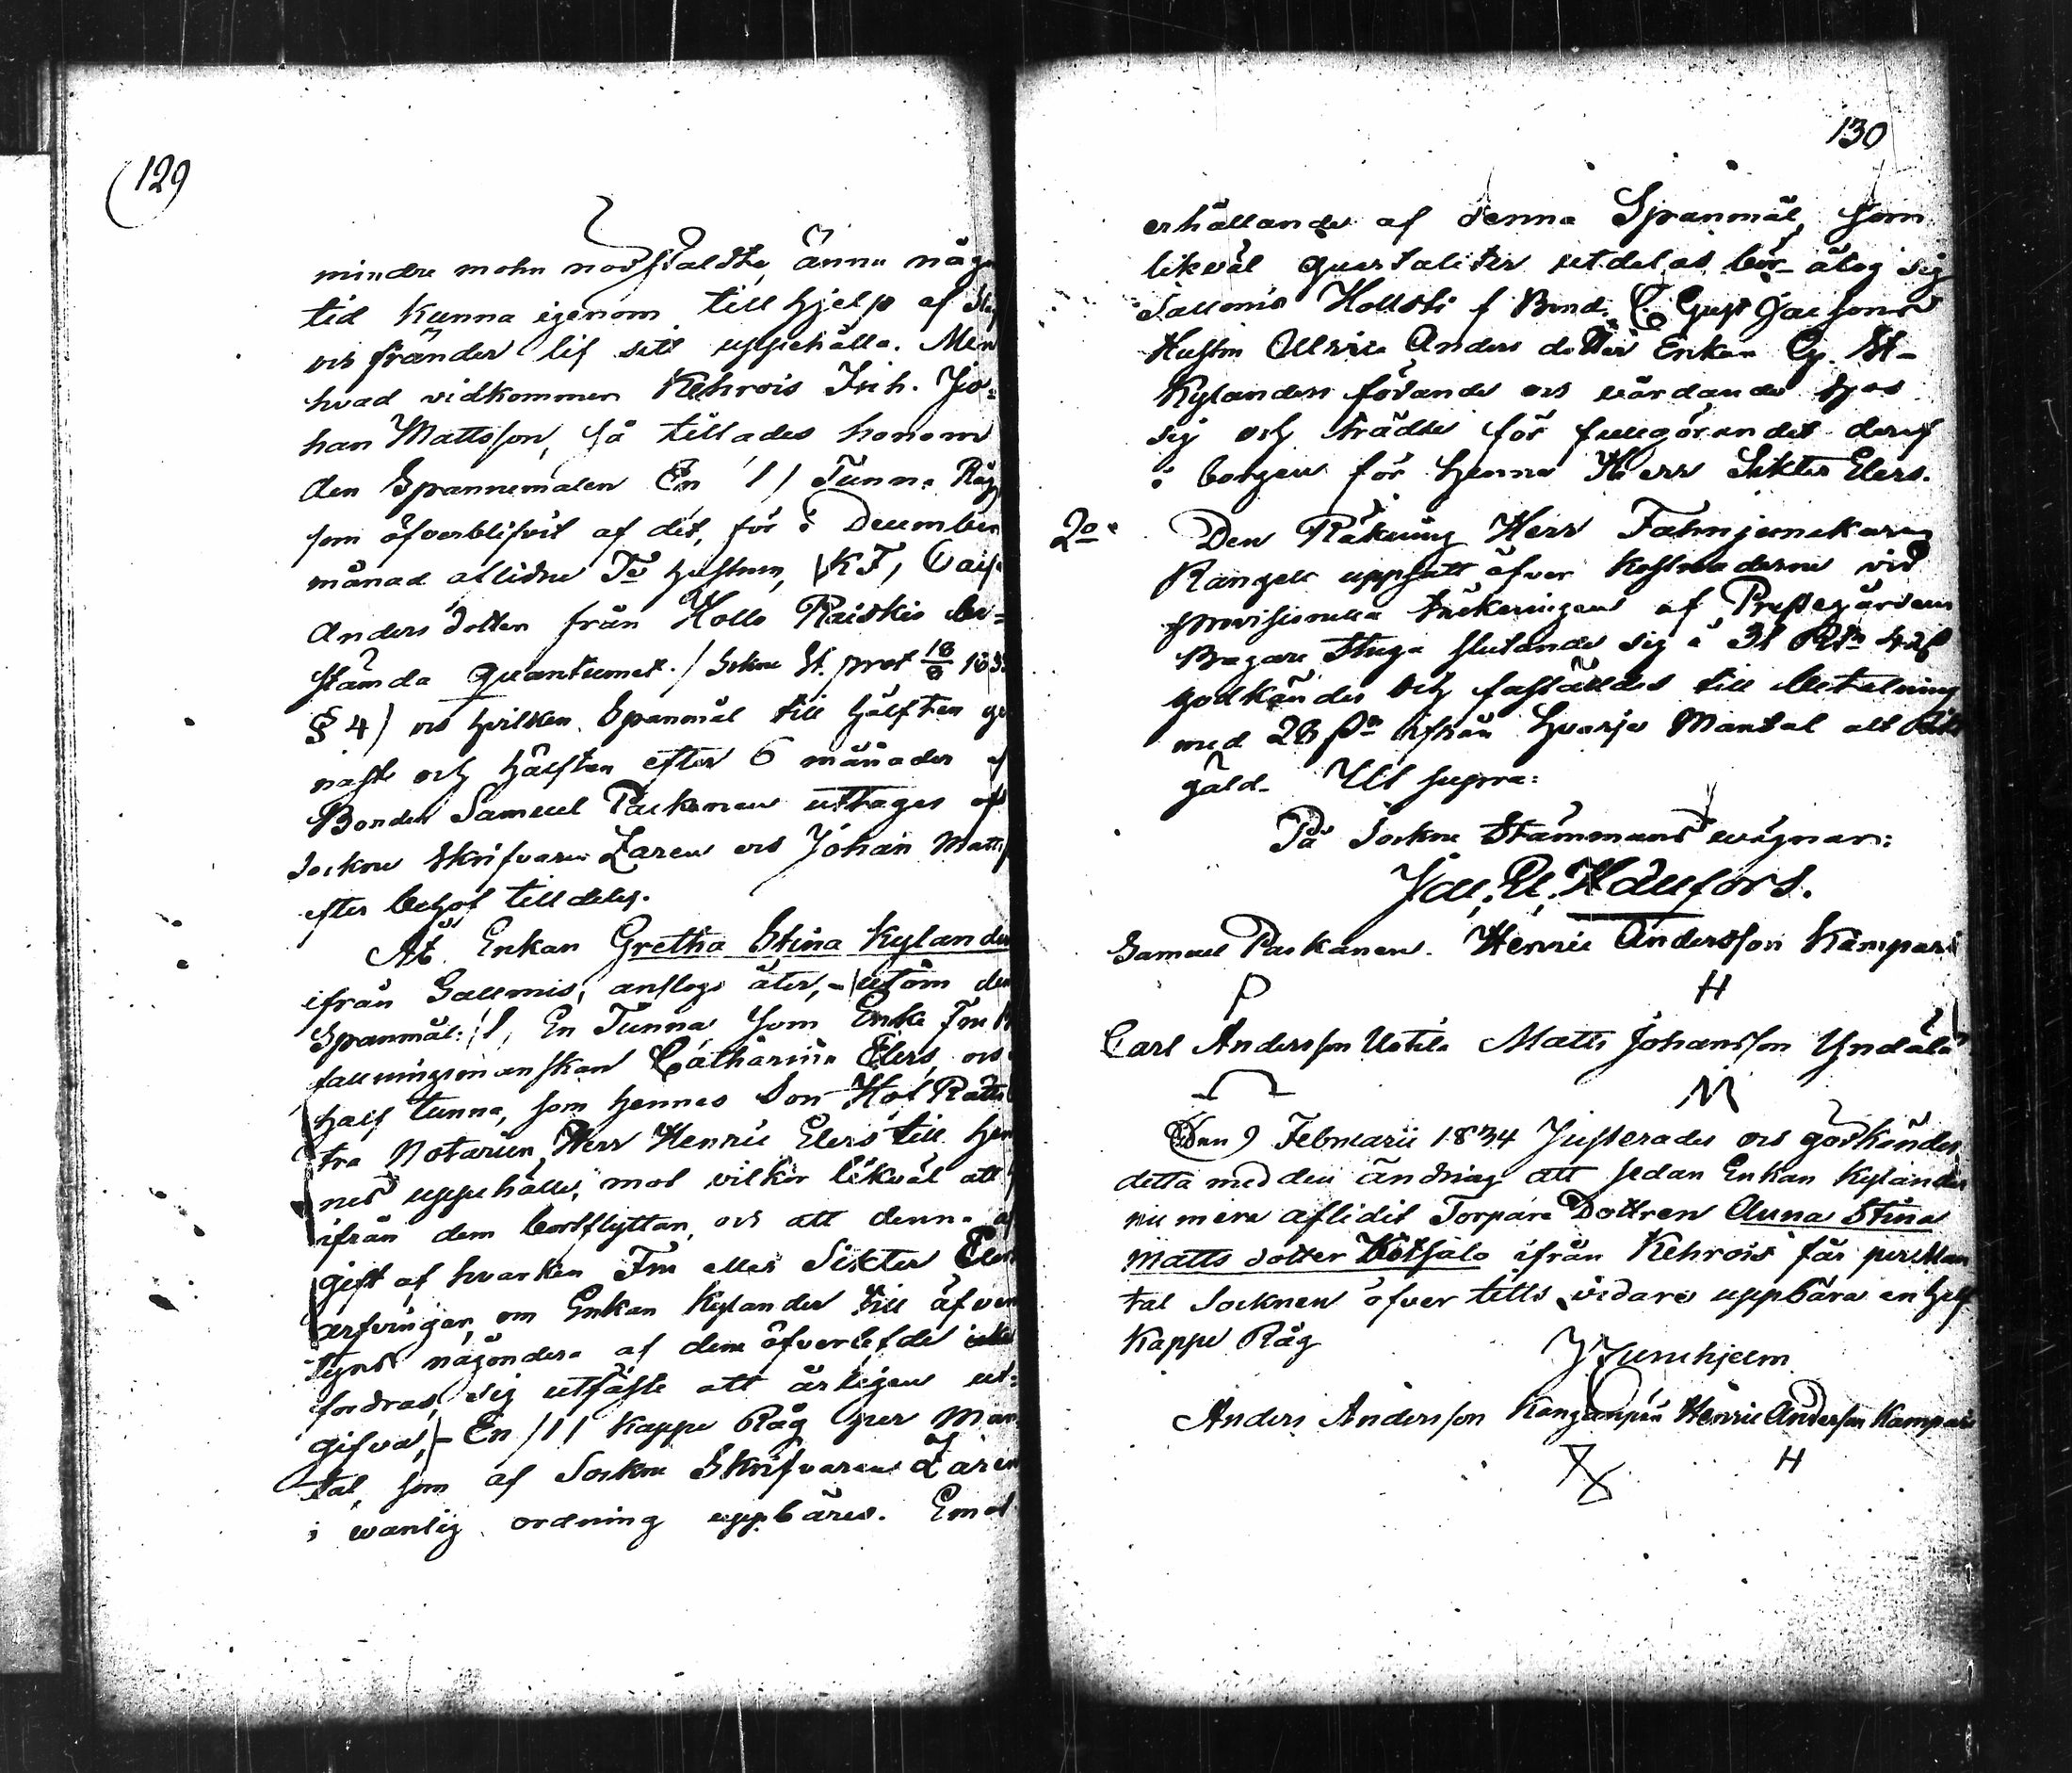 129
mindre mohn nödstäldte, ännu någo
tid kunna igenom till hjelp af
och fränder lif sitt uppehålla. Men
hvad vidkommer Kehrois Inh. Jo=
han Mattsson, så tillades honom
den Spannemålen En /1/ Tunna Råg
som öfverblifvit af det, för i December
månad aflidne hustrun, Caisa
Anders dotter från Hollo Raiskis be=
stämda quantumet. / Sokne St. prot 18/8 183
§ 4) och hvilken Spanmål till hälften ge
nast och hälften efter 6 månader af
Bonden Samuel Paikanen uttages af
Sockne Skrifvaren Zaren och Johan Matts
efter behof tilldelas.
Åt Enkan Gretha Stina Kylander
ifrån Sallmis, anslogs åter, - utom den
Spanmål: /1/ En Tunna som Enke Fru
fallningsmanskan Catharina Elers, och
half tunna, som hennes Son Hof Rätts
tra Notarien Herr Henric Elers till hen
nes uppehälle, mot vilkor likväl att
ifrån dem bortflyttar, och att denna af
gift af hvarken Fru eller Sikter Elers
arfvingar, om Enkan Kylander till äfven
tyrs någondera af dem öfverlefde icke
fordras, sig utfäste att årligen ut=
gifva, - En /1/ Kappe Råg per Man
tal, som af Sockne Skrifvaren Zaren
i wanlig ordning uppbäres. Emot
130
erhållande af denna Spanmål, som
likväl quartaliter utdelas bör åtog sig
Sallmis Hollsti f Bond. C. Gust Jacsons
Hustru Ullrica Anders dotter Enkan Gr. St-
Kylanders födande och vårdande hos
sig och trädde för fullgörandet deraf
i borgen för henne Herr Sikter Elers.
2o. Den Räkning Herr Fahnjunckaren
Rangell uppsatt öfver kostnaderne vid
provisionella täckningen af Prestegårdens
Bagare Stuga slutande sig å 31 Rd 42
godkändes och faställdes till betalning
med 28 ifrån hvarje Mantal allt Riks
gäld. Ut supra:
På Sockne Stämmans wägnar:
Samuel Paikanen. Henric Andersson Kämpari
P H
Carl Andersson Uotila Matts Johansson Yndälä
M
Den 9 Februarii 1834 Justerades och godkändes
detta med den ändring att sedan Enkan Kylander
nu mera aflidit Torpare Dottren Anna Stina
Matts dotter ifrån Kehrois får per Man
tal Socknen öfver tills vidare uppbära en half
Kappe Råg
Anders Andersson Kanganpää Henric Andersson Kämpari
H